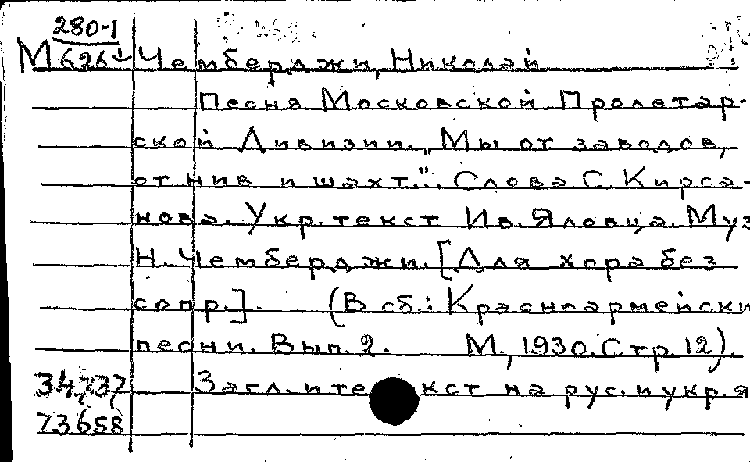 280-1
М 626 Чемберджи, Николай
Песня Московской Пролетар-
ской Дивизии. „Мы от заводов,
от нив и шахт.". Слова С. Кирса-
нова. Укр. текст Ив. Яловца. Муз
Н. Чемберджи. [Для хора без
сопр.]. (В сб.: Красноармейски
песни. Вып. 2. М., 1930. Стр. 12).
34737 Загл. и текст на рус. и укр. я
73658